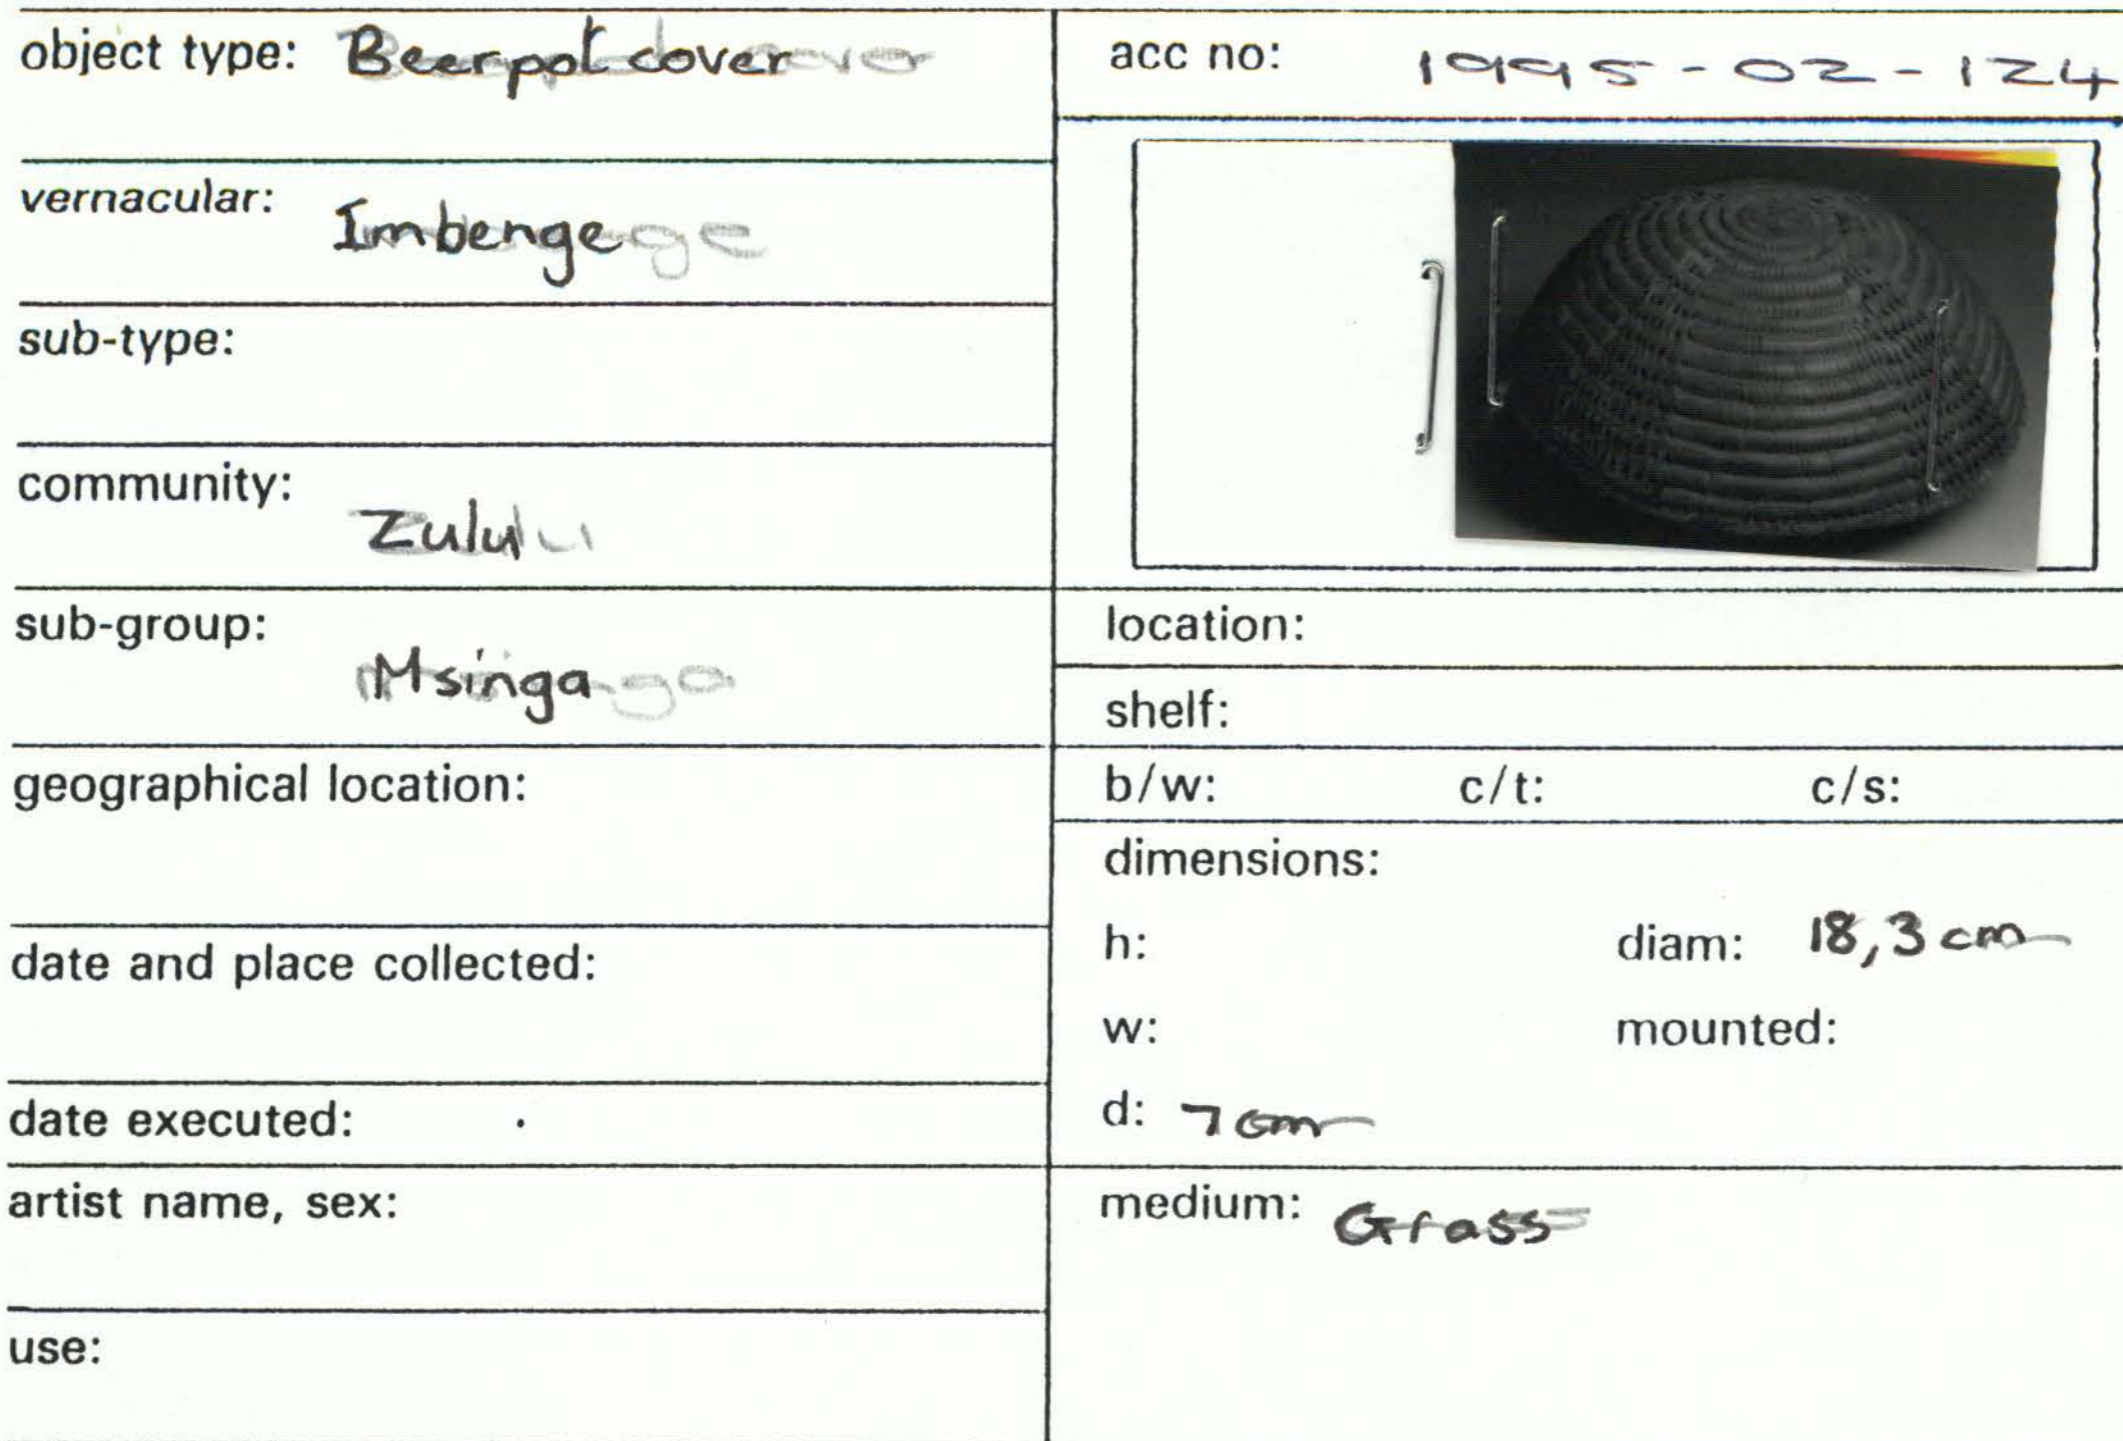 object type: Beerpot cover
vernacular: Imbenge
sub-type:
community: Zulu
sub-group: Msinga
geographical location:
date and place collected:
date executed:
artist name, sex:
use:
acc no: 1995-02-124
location:
shelf:
b/w: c/t: c/s:
dimensions:
h: diam: 18,3 cm
w: mounted:
d: 7 cm
medium: Grass